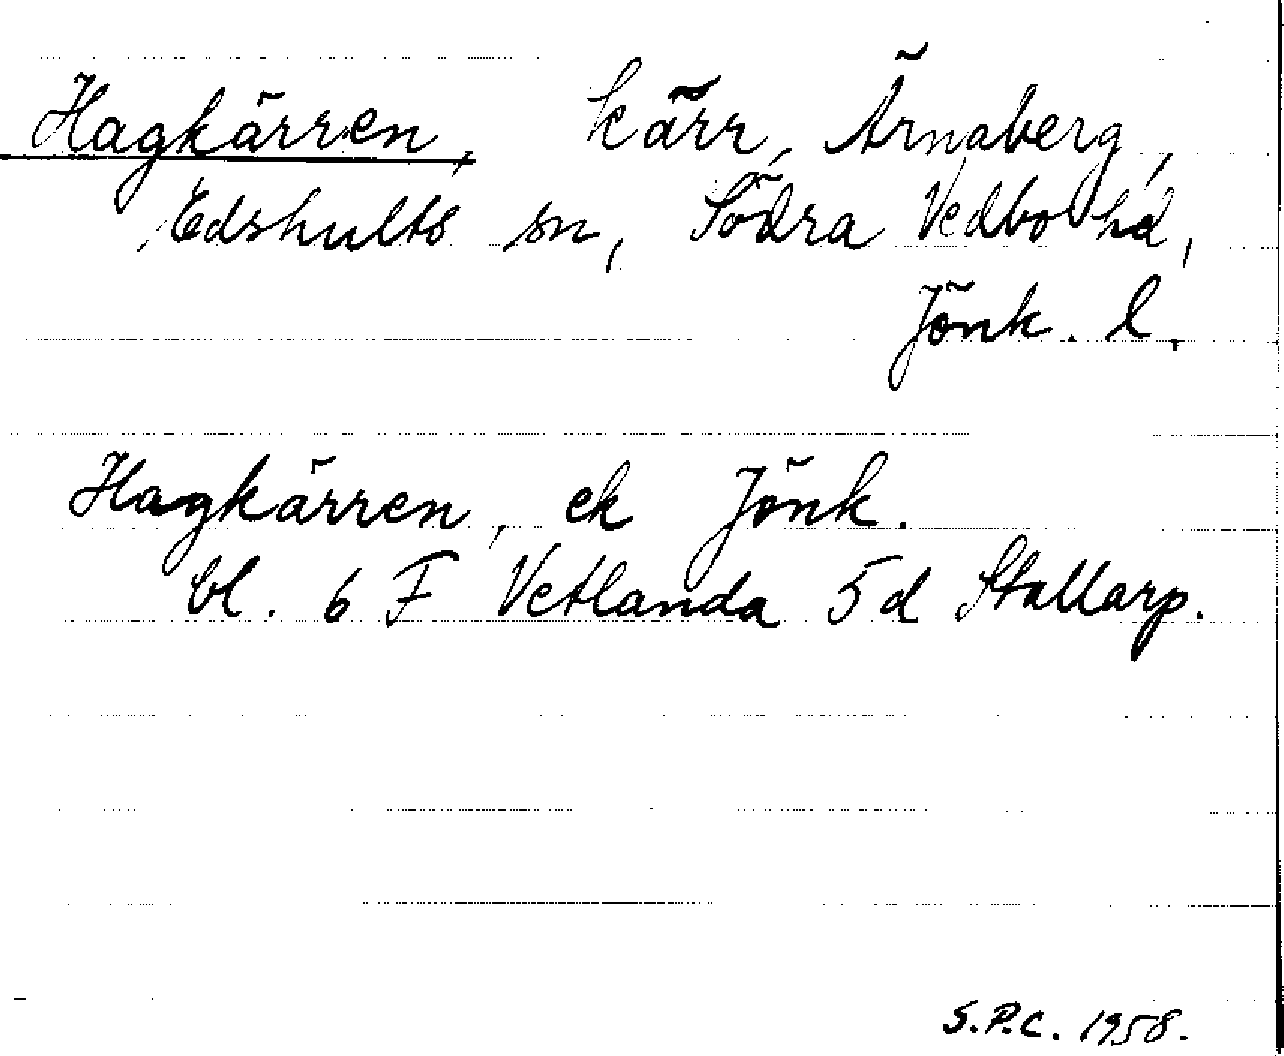 Hagkärren, kärr, Ärnaberg,
Edshults sn, Södra Vedbo hd,
Jönk. l.
Hagkärren, ek Jönk.
bl. 6 F Vetlanda 5d Stallarp.
S.P.C. 1958.